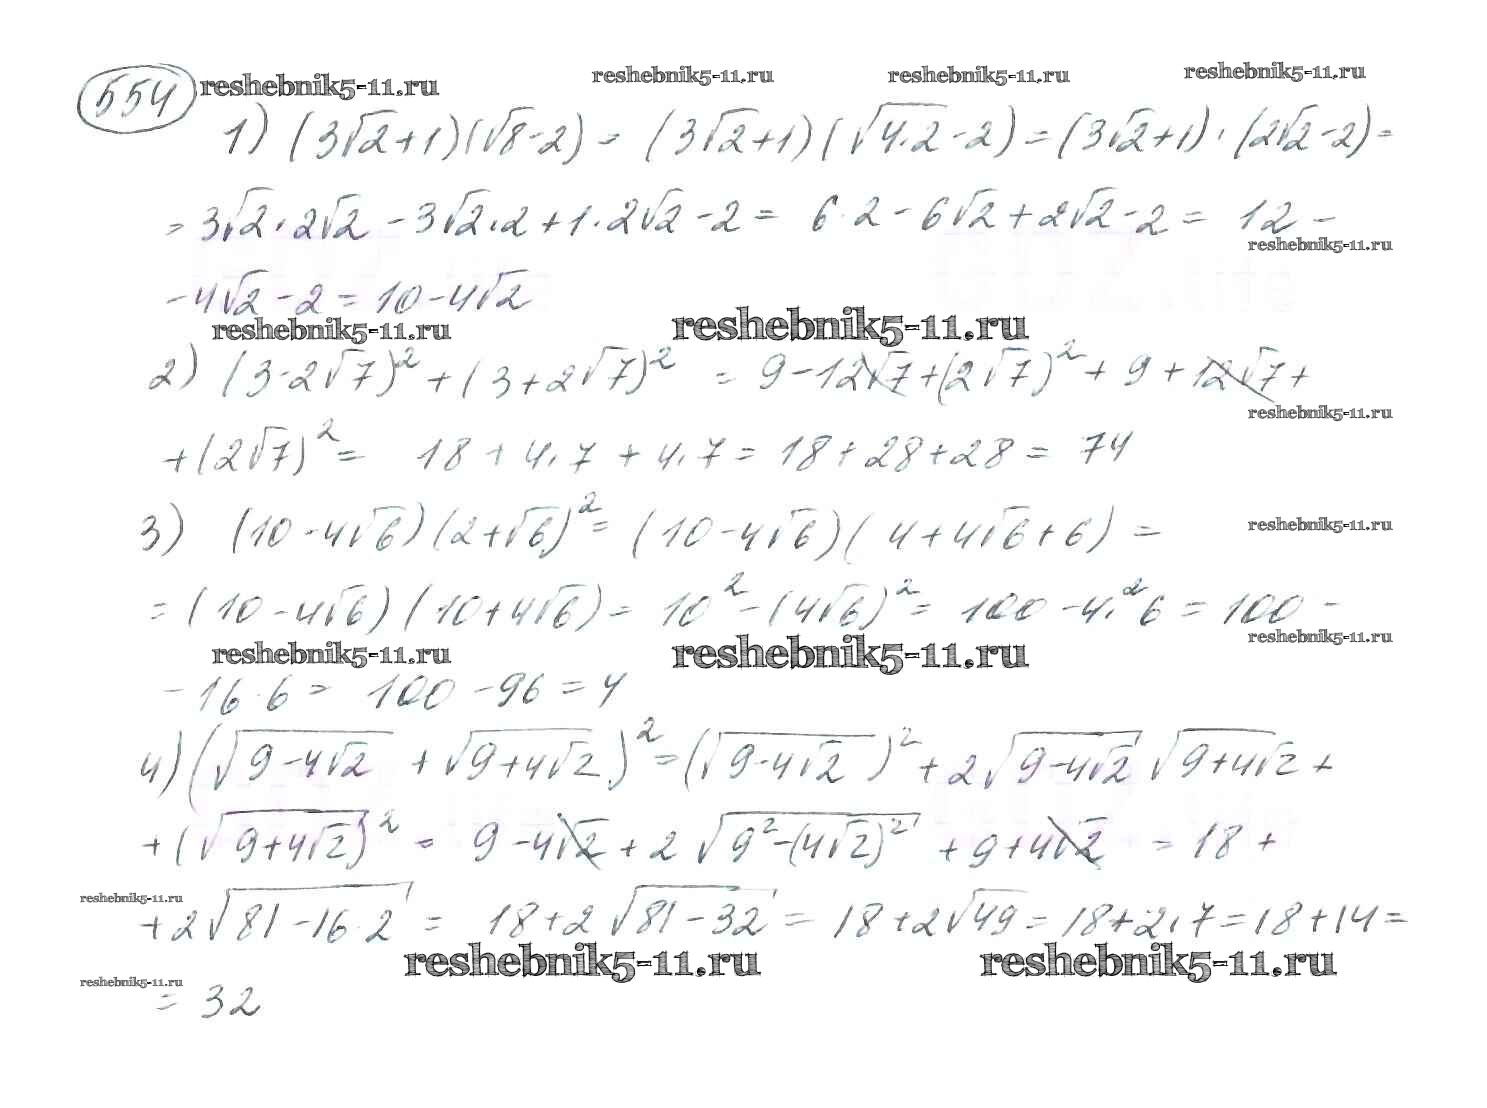 554 reshebnik5-11.ru reshebnik5-11.ru reshebnik5-11.ru reshebnik5-11.ru
1) (3√2+1)(√8-2) = (3√2+1)(√4·2-2) = (3√2+1)·(2√2-2) =
= 3√2·2√2 - 3√2·2 + 1·2√2 - 2 = 6·2 - 6√2 + 2√2 - 2 = 12 -
reshebnik5-11.ru
- 4√2 - 2 = 10 - 4√2
reshebnik5-11.ru reshebnik5-11.ru
2) (3-2√7)² + (3+2√7)² = 9 - 12√7 + (2√7)² + 9 + 12√7 +
reshebnik5-11.ru
+ (2√7)² = 18 + 4·7 + 4·7 = 18 + 28 + 28 = 74
3) (10-4√6)(2+√6)² = (10-4√6)(4+4√6+6) =
reshebnik5-11.ru
= (10-4√6)(10+4√6) = 10² - (4√6)² = 100 - 4²·6 = 100 -
reshebnik5-11.ru reshebnik5-11.ru reshebnik5-11.ru
- 16·6 = 100 - 96 = 4
4) (√9-4√2 + √9+4√2)² = (√9-4√2)² + 2√9-4√2 √9+4√2 +
+ (√9+4√2)² = 9 - 4√2 + 2√9²-(4√2)² + 9 + 4√2 = 18 +
reshebnik5-11.ru
+ 2√81-16·2 = 18 + 2√81-32 = 18 + 2√49 = 18 + 2·7 = 18 + 14 =
reshebnik5-11.ru reshebnik5-11.ru
reshebnik5-11.ru
= 32